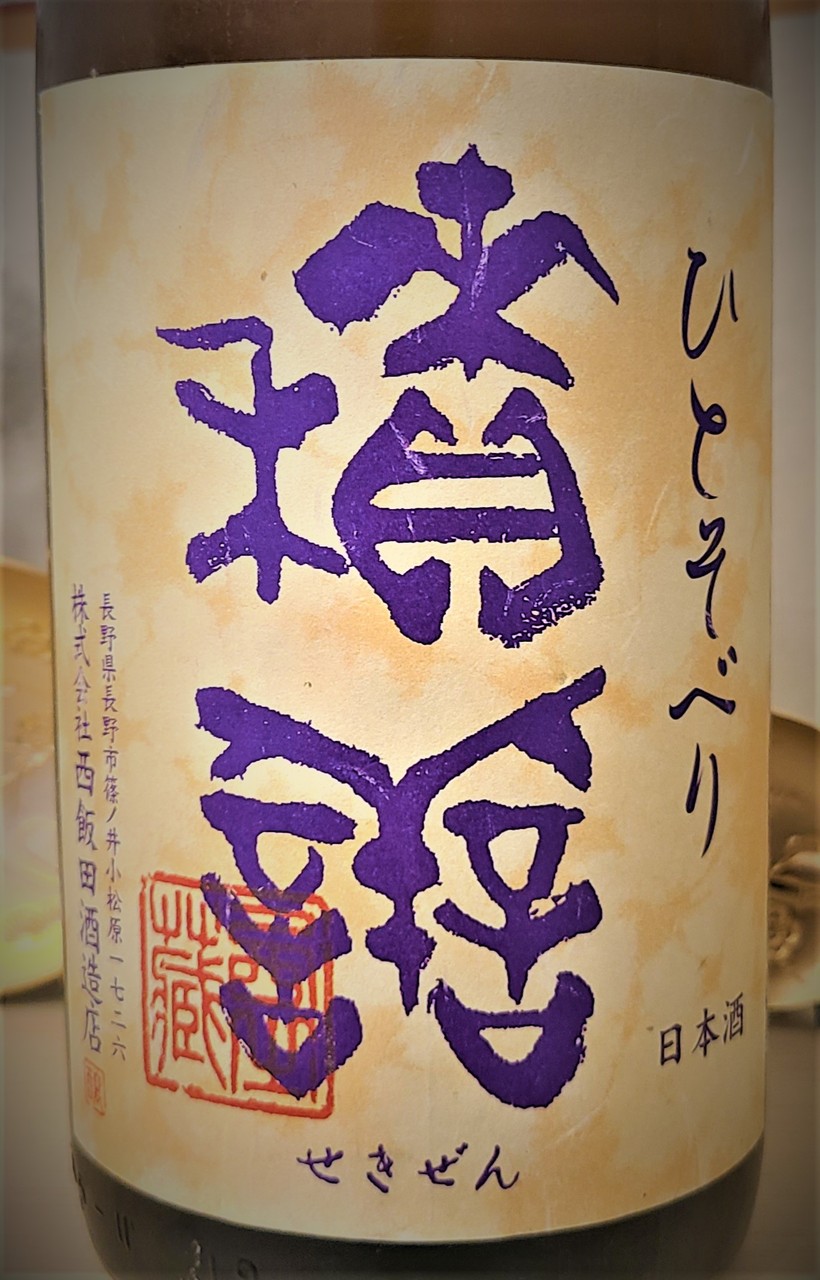 ひとそべり
積善
せきぜん
日本酒
長野県長野市篠ノ井小松原一七二六
株式会社西飯田酒造店